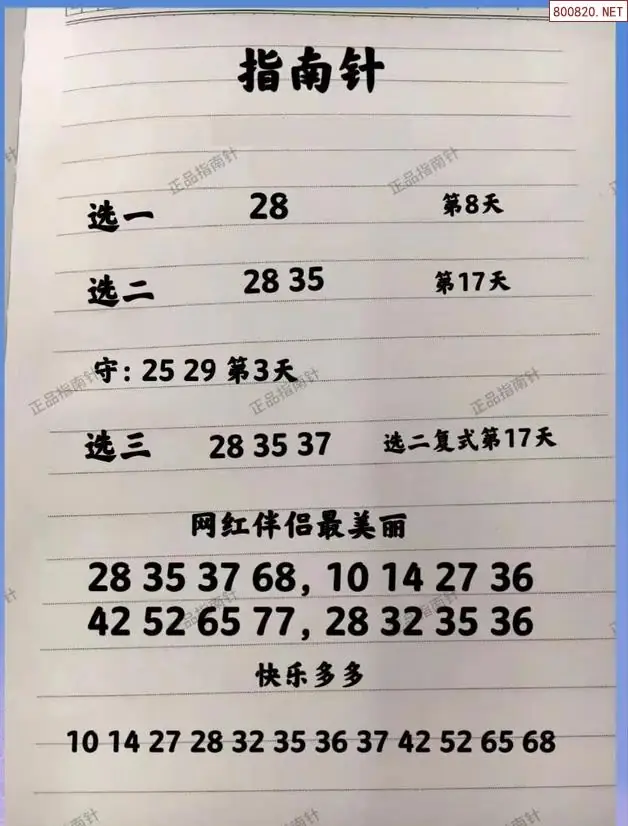 800820.NET
指南针
正品指南针 正品指南针
选一 28 第8天
选二 28 35 第17天
守：25 29 第3天
正品指南针 正品指南针 正品指南针
选三 28 35 37 选二复式第17天
网红伴侣最美丽
28 35 37 68，10 14 27 36
正品指南针 正品指南针
42 52 65 77，28 32 35 36
快乐多多
10 14 27 28 32 35 36 37 42 52 65 68